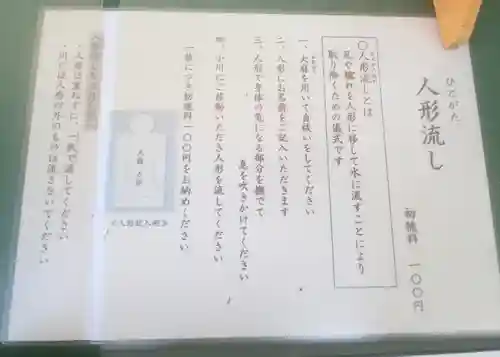 ひとがた
人形流し
初穂料 一〇〇円
〇人形流しとは
厄や穢れを人形に移して水に流すことにより
取り除くための儀式です
一、大麻を用いて自祓いをしてください
二、人形にお名前をご記入いただきます
三、人形で身体の気になる部分を撫でて
息を吹きかけてください
四、小川にご移動いただき人形を流してください
一体につき初穂料一〇〇円をお納めください
・人形は重ねずに、一枚で流してください
・川には人形以外のものは流さないでください